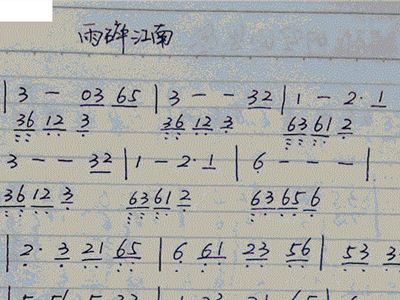 雨碎江南
| 3 – 03 65 | 3 – – 32 | 1 – 2· 1
36 12 3 36 12 3 63 61 2
3 – – 32 | 1 – 2· 1 | 6 – – – |
36 12 3 63 61 2 63 65 6
| 2· 3 21 65 | 6 61 23 56 | 53 3